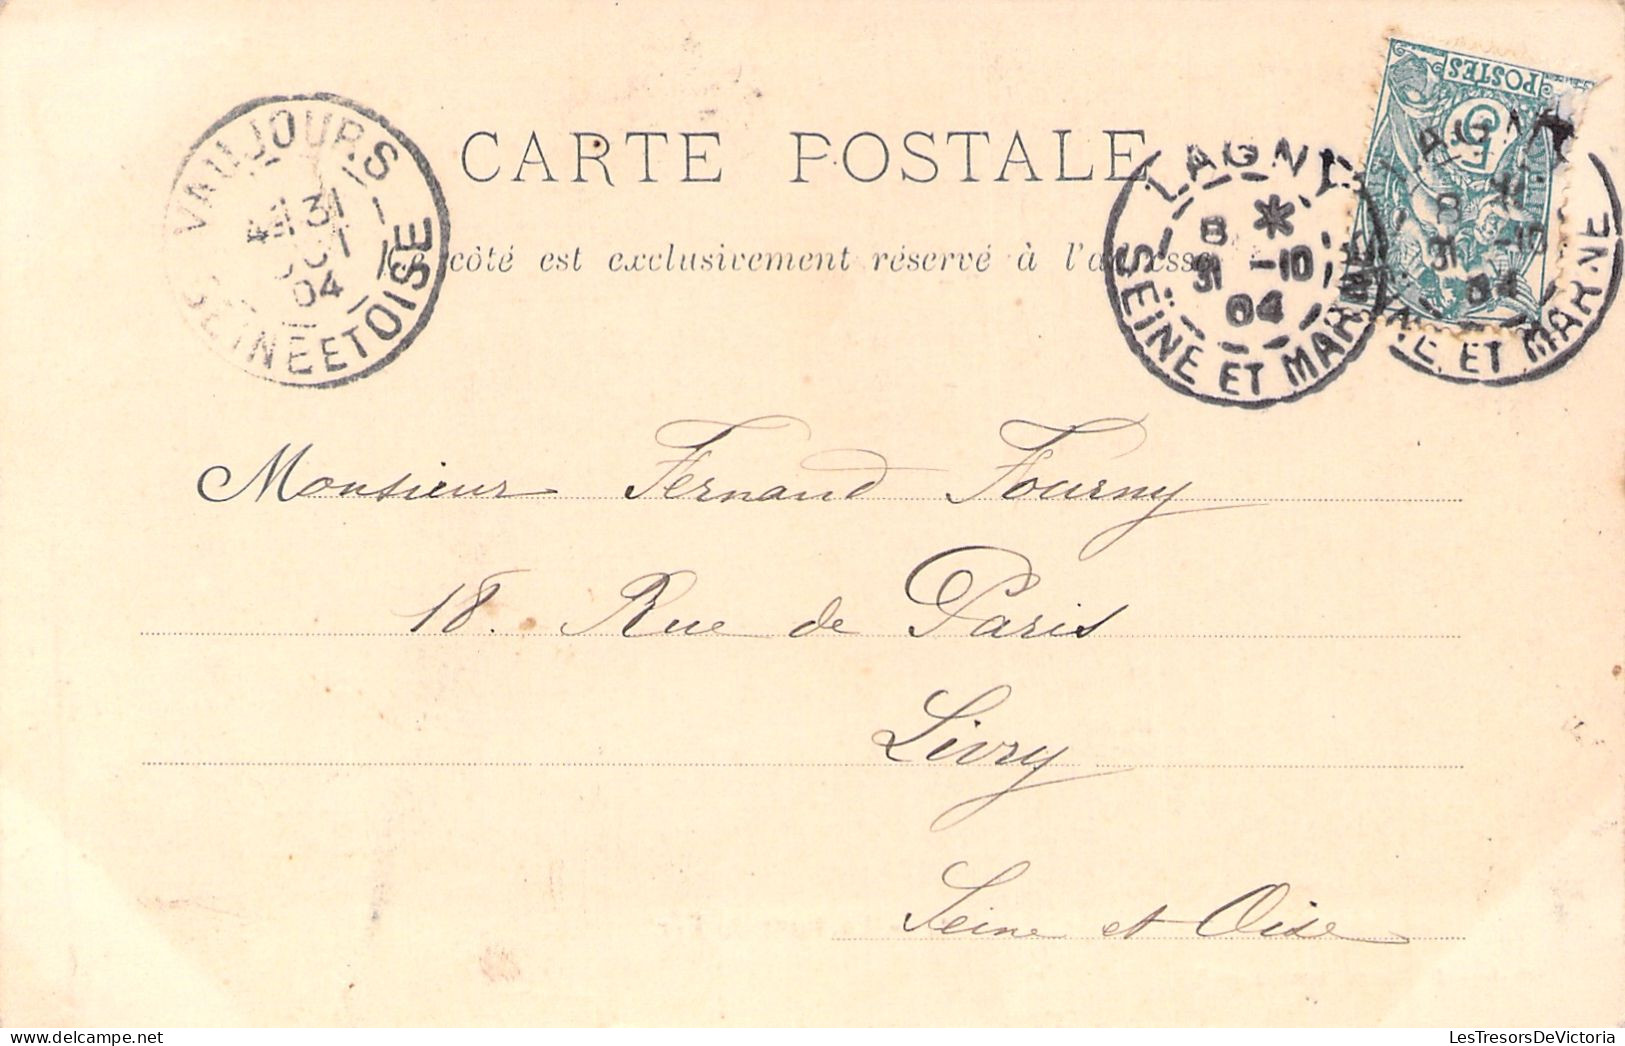 CARTE POSTALE
côté est exclusivement réservé à l'adresse
VAUJOURS
31
04
SEINE ET OISE
LAGNY
8 *
31 -10
04
SEINE ET MARNE
LAGNY
8
31 -10
04
SEINE ET MARNE
POSTES
5
Monsieur Fernand Fourny
18. Rue de Paris
Livry
Seine et Oise
LesTresorsDeVictoria